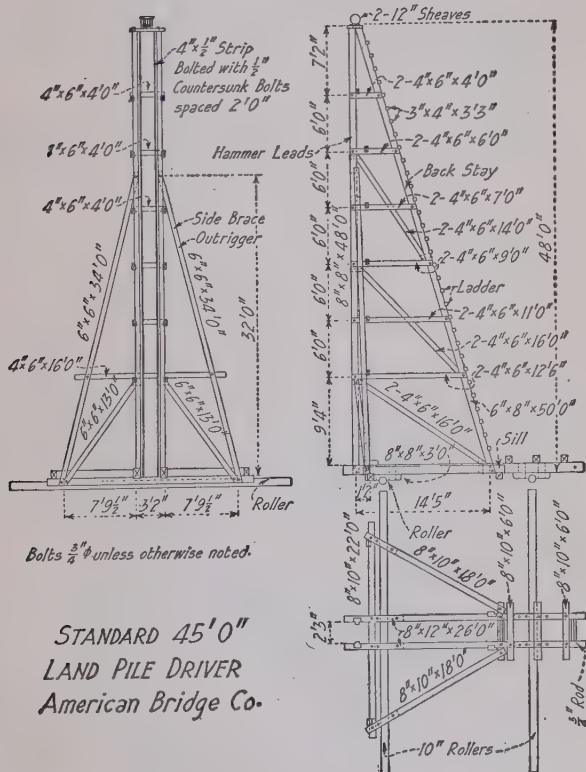 4"x½" Strip
Bolted with ½"
Countersunk Bolts
spaced 2'0"
4"x6"x4'0"
3"x6"x4'0"
4"x6"x4'0"
Side Brace
Outrigger
6"x6"x34'0"
6"x6"x34'0"
32'0"
4"x6"x16'0"
6"x6"x13'0"
6"x6"x13'0"
Roller
7'9½" 3'2" 7'9½"
Bolts ¾"ϕ unless otherwise noted.
STANDARD 45'0"
LAND PILE DRIVER
American Bridge Co.
2-12" Sheaves
7'2"
2-4"x6"x4'0"
3"x4"x3'3"
6'0"
2-4"x6"x6'0"
Hammer Leads
Back Stay
6'0"
2-4"x6"x7'0"
2-4"x6"x14'0"
48'0"
8"x8"x48'0"
6'0"
2-4"x6"x9'0"
Ladder
6'0"
2-4"x6"x11'0"
2-4"x6"x16'0"
6'0"
2-4"x6"x12'6"
2-4"x6"x16'0"
6"x8"x50'0"
9'4"
8"x8"x3'0"
Sill
14'5"
Roller
8"x10"x22'0"
8"x10"x18'0"
8"x10"x6'0"
8"x10"x6'0"
2'3"
8"x12"x26'0"
8"x10"x18'0"
¾" Rod
10" Rollers